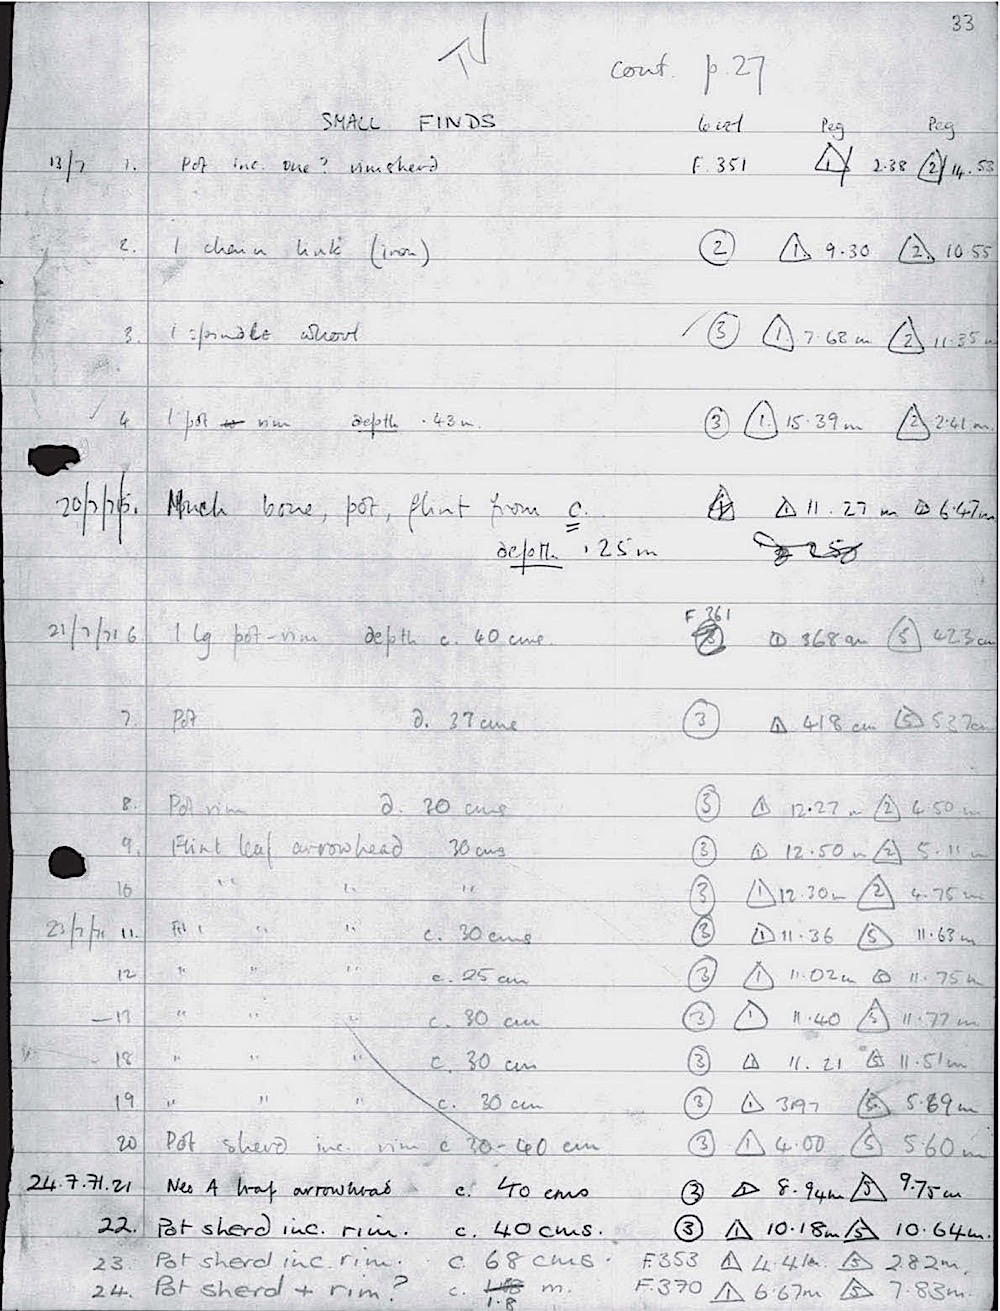 33
IV
cont. p.27
SMALL FINDS Level Peg Peg
13/7 1. Pot inc. one? rimsherd F.351 1 2.38 2 14.53
2. 1 chain link (iron) 2 1 9.30 2 10.55
3. 1 spindle whorl 3 1 7.62 m 2 11.35 m
4 1 pot rim depth .43 m. 3 1 15.39 m 2 2.41 m.
20/7/71 5. Much bone, pot, flint from c. 1 11.27 m 2 6.47m
depth .25m
F 361
21/7/71 6. 1 lg pot-rim depth c. 40 cms. 1 368 cm 5 423 cm
7. Pot d. 37 cms 3 1 418 cm 5 537cm
8. Pot rim d. 20 cms 3 1 12.27 m 2 4.50 m
9. Flint leaf arrowhead 30 cms 3 1 12.50 m 2 5.11 m
10 " " " 3 1 12.30m 2 4.75 m
23/7/71 11. " " c. 30 cms 3 1 11.36 5 11.63 m
12 " " " c. 25 cm 3 1 11.02m 5 11.75 m
" " " c. 30 cm 3 1 11.40 5 11.77 m
18 " " " c. 30 cm 3 1 11.21 5 11.51m
19 " " " c. 30 cm 3 1 3.97 5 5.89m
20 Pot sherd inc. rim c 30-40 cm 3 1 4.00 5 5.60 m
24.7.71. 21 Neo A leaf arrowhead c. 40 cms 3 1 8.94m 5 9.75m
22. Pot sherd inc. rim. c. 40 cms. 3 1 10.18m 5 10.64m.
23. Pot sherd inc. rim. c. 68 cms. F.353 1 4.41m 5 2.82m.
24. Pot sherd + rim? c. 1.8 m. F.370 1 6.67m 5 7.83m.